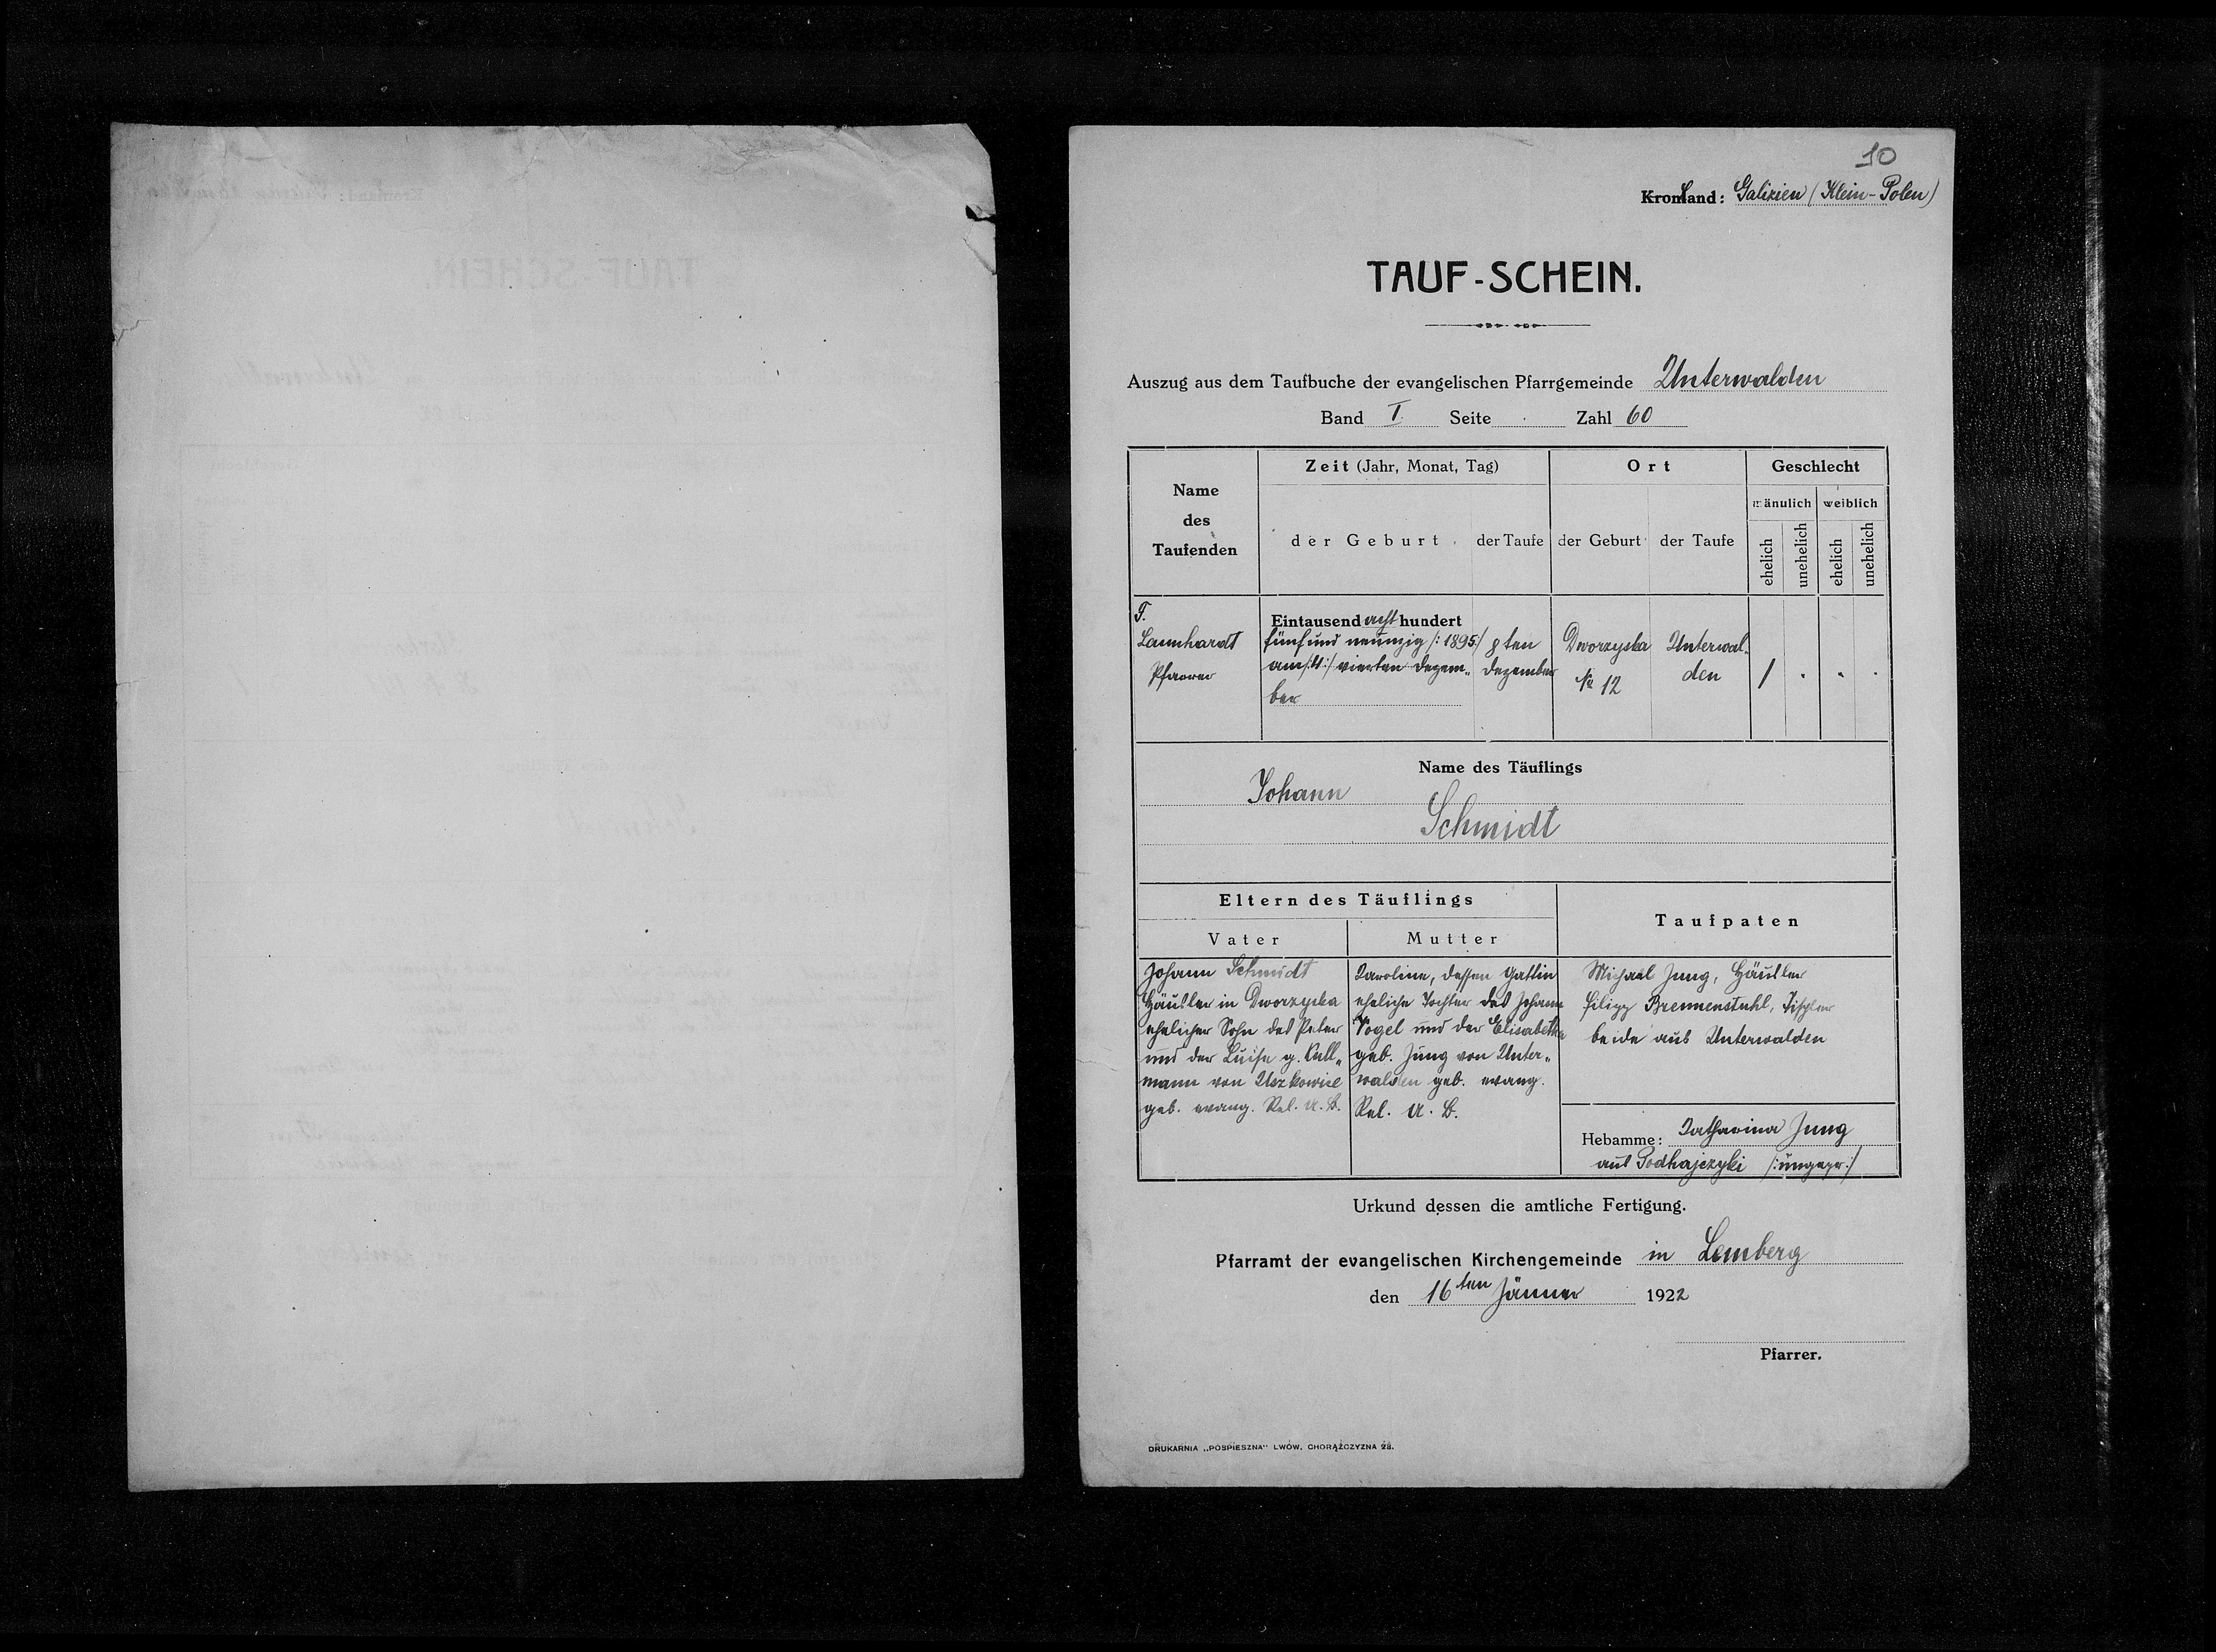 10
Kronland: Galizien (Klein-Polen)
TAUF-SCHEIN.
Auszug aus dem Taufbuche der evangelischen Pfarrgemeinde Unterwalden
Band I. Seite . Zahl 60
Name des Taufenden
Zeit (Jahr, Monat, Tag)
der Geburt
der Taufe
Ort
der Geburt
der Taufe
Geschlecht
mänulich
weiblich
ehelich
unehelich
ehelich
unehelich
F.
Lannhardt
Pfarrer
Eintausend acht hundert
fünfund neunzig /: 1895 :/
am /:4:/ vierten Dezem„
ber
8ten
Dezember
Dworzyska
№ 12
Unterwal„
den
/ . . .
Name des Täuflings
Johann
Schmidt
Eltern des Täuflings
Vater
Mutter
Taufpaten
Johann Schmidt
Häusler in Dworzyska
ehelicher Sohn des Peter
und der Luise g. Kull„
mann von Uszkowice
geb. evang. Rel. A. B.
Karoline, dessen Gattin
eheliche Tochter des Johann
Vogel und der Elisabetha
geb. Jung von Unter„
walden geb. evang.
Rel. A. B.
Michael Jung, Häusler
Filipp Brennenstuhl, Tischler
beide aus Unterwalden
Hebamme: Katharina Jung
aus Podhajczyki /: ungepr :/
Urkund dessen die amtliche Fertigung.
Pfarramt der evangelischen Kirchengemeinde in Lemberg
den 16ten Jänner 1922
Pfarrer.
DRUKARNIA „POSPIESZNA" LWÓW, CHORĄŻCZYZNA 28.